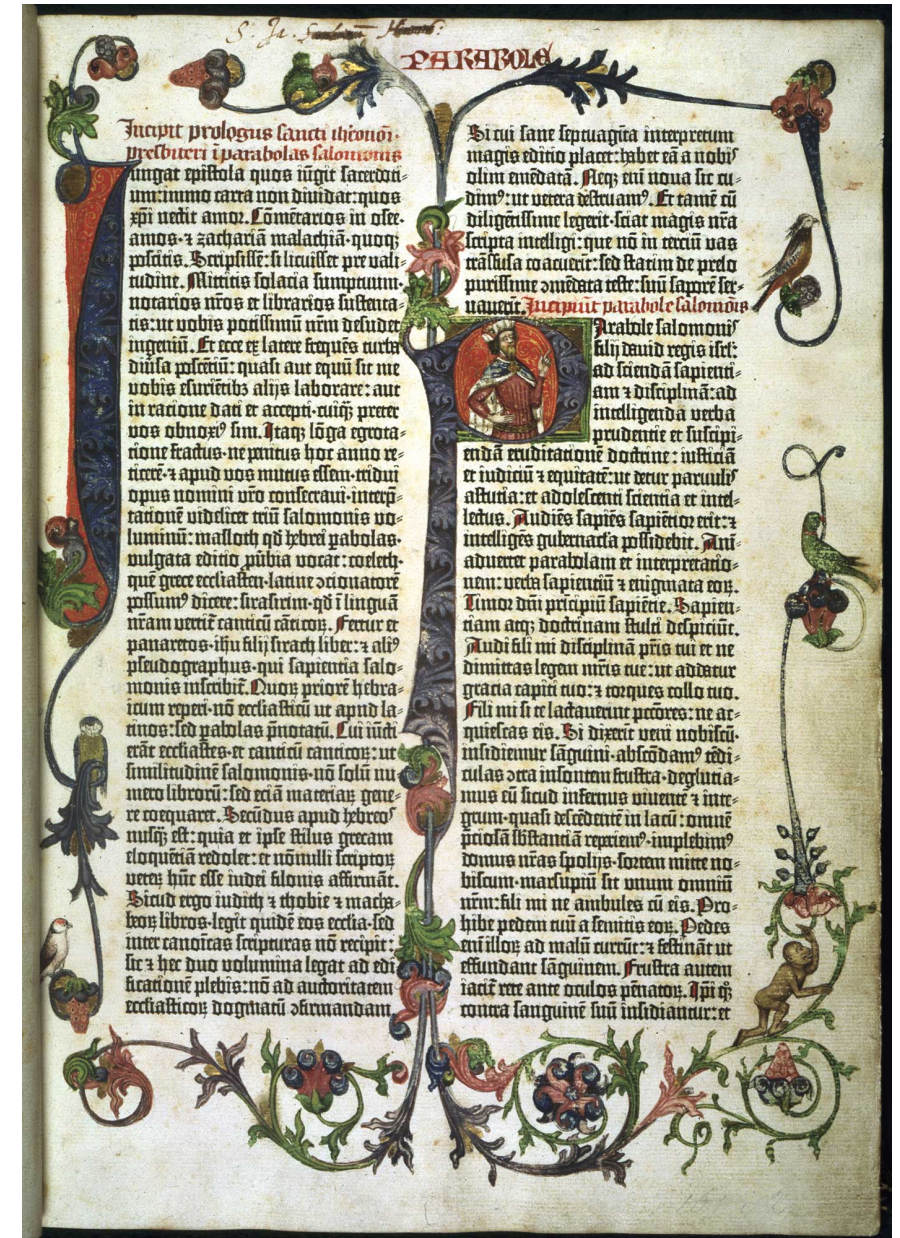 PARABOLE
Incipit prologus sancti iheronimi
presbiteri ī parabolas salomonis
Iungat epistola quos iūgit sacerdoti-
um: immo carta non dividat: quos
xp̄i nectit amor. Cōmētarios in osee.
amos. ⁊ zachariā malachiā. quoqꝫ
poscitis. Scripsissē: si licuisset pre vali-
tudine. Mittitis solacia sumptuum.
notarios nr̄os et librarios sustenta-
tis: ut vobis potissimū nr̄m desudet
ingeniū. Et ecce ex latere frequēs turba
diūsa poscētiū: quasi aut equū sit me
vobis esuriētibꝫ alijs laborare: aut
in racione dati et accepti. cuiqꝫ preter
vos obnoxiꝰ sim. Itaqꝫ lōga egrota-
tione fractus. ne penitus hoc anno re-
ticerē. ⁊ apud vos mutus essem. tridui
opus nomini vr̄o consecraui. interp̄-
tationē videlicet triū salomonis vo-
luminū: masloth qd̄ hebrei ꝑabolas.
vulgata editio ꝓūbia vocat: coeleth.
quē grece eccl̄iasten. latine ꝯcionatorē
possumꝰ dicere: sirasirim. qd̄ ī linguā
nr̄am vertit̄ canticū cāticoꝝ. Fertur et
panaretos. ih̄u filij sirach liber: ⁊ aliꝰ
pseudographus. qui sapientia salo-
monis inscribit̄. Quoꝝ priorē hebra-
icum reperi. nō eccl̄iasticū ut apud la-
tinos: sed ꝑabolas p̄notatū. Cui iūcti
erāt eccl̄iastes. et canticū canticoꝝ: ut
similitudinē salomonis. nō solū nu-
mero librorū: sed eciā materiaꝝ gene-
re coequaret. Secūdus apud hebreoꝰ
nusqꝫ est: quia et ipse stilus grecam
eloquētiā redolet: et nōnulli scriptoꝝ
veteꝝ hūc esse iudei filonis affirmāt.
Sicud ergo iudith ⁊ thobie ⁊ macha-
beoꝝ libros. legit quidē eos eccl̄ia. sed
inter canoīcas scripturas nō recipit:
sic ⁊ hec duo volumina legat ad edi-
ficationē plebis: nō ad auctoritatem
eccl̄iasticoꝝ dogmatū ꝯfirmandam.
Si cui sane septuagīta interpretum
magis editio placet: habet eā a nobiꝰ
olim emēdatā. Neqꝫ eni nova sic cu-
dimꝰ: ut vetera destruamꝰ. Et tamē cū
diligētissime legerit. sciat magis nr̄a
scripta intelligi: que nō in terciū vas
trāsfusa coacuerīt: sed statim de prelo
purissime ꝯmēdata teste: suū saporē ser-
vauerīt. Incipiūt parabole salomōis
Parabole salomoniꝰ
filij dauid regis isrl̄:
ad sciendā sapienti-
am ⁊ disciplinā: ad
intelligendā verba
prudentie et suscipi-
endā eruditationē doctrine: iusticiā
et iudiciū ⁊ equitatē: ut detur paruuliꝰ
astutia: et adolescenti scientia et intel-
lectus. Audiēs sapiēs sapiētior erit: ⁊
intelligēs gubernacula possidebit. Anī-
aduertet parabolam et interpretatio-
nem: verba sapientiū ⁊ enigmata eoꝝ.
Timor dn̄i pricipiū sapiētie. Sapien-
tiam atqꝫ doctrinam stulti despiciūt.
Audi fili mi disciplinā pr̄is tui et ne
dimittas legem mr̄is tue: ut addatur
gracia capiti tuo: ⁊ torques collo tuo.
Fili mi si te lactauerint pct̄ores: ne ac-
quiescas eis. Si dixerīt veni nobiscū.
insidiemur sāguini. abscōdamꝰ tēdi-
culas ꝯtra insontem frustra. deglutia-
mus eū sicud infernus viuentē ⁊ inte-
grum. quasi descēdentē in lacū: omnē
p̄ciosā sb̄stanciā repriemꝰ. implebimꝰ
domus nr̄as spolijs. sortem mitte no-
biscum. marsupiū sit vnum omniū
nr̄m: fili mi ne ambules cū eis. Pro-
hibe pedem tuū a semitis eoꝝ. Pedes
eni illoꝝ ad malū currūt: ⁊ festināt ut
effundant sāguinem. Frustra autem
iacit̄ rete ante oculos pēnatoꝝ. Ip̄i qꝫ
contra sanguinē suū insidiantur: et